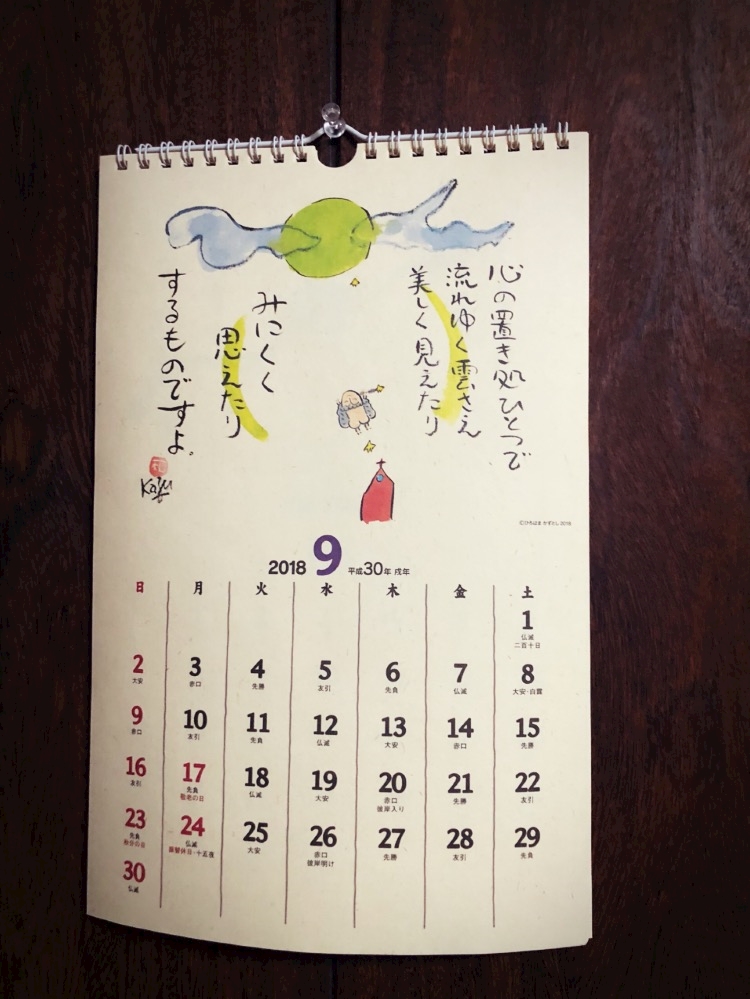 心の置き処ひとつで
流れゆく雲さえ
美しく見えたり
みにくく
思えたり
するものですよ。
2018 9 平成30年 戌年
日 月 火 水 木 金 土
1
仏滅
二百十日
2 3 4 5 6 7 8
大安 赤口 先勝 友引 先負 仏滅 大安・白露
9 10 11 12 13 14 15
赤口 友引 先負 仏滅 大安 赤口 先勝
16 17 18 19 20 21 22
友引 先負 仏滅 大安 赤口 先勝 友引
敬老の日 彼岸入り
23 24 25 26 27 28 29
先負 仏滅 大安 赤口 先勝 友引 先負
秋分の日 振替休日・十五夜 彼岸明け
30
仏滅